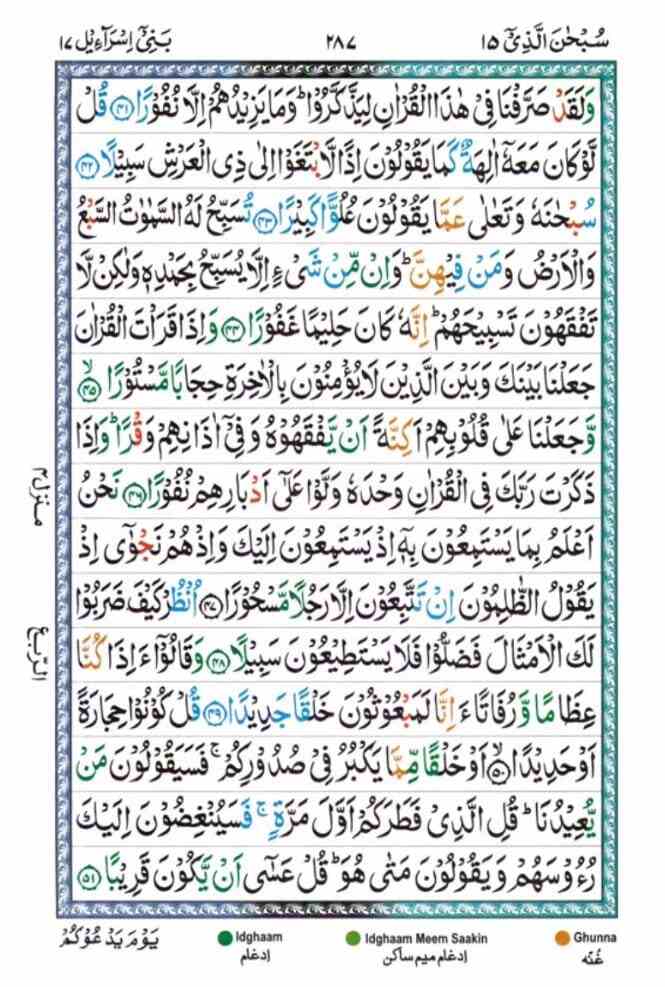 سُبْحٰنَ الَّذِیْۤ ۱۵
۲۸۷
بَنِیْۤ اِسْرَآءِیْل ۱۷
وَلَقَدْ صَرَّفْنَا فِیْ هٰذَا الْقُرْاٰنِ لِیَذَّكَّرُوْا ؕ وَمَا یَزِیْدُهُمْ اِلَّا نُفُوْرًا ﴿۴۱﴾ قُلْ
لَّوْ كَانَ مَعَهٗۤ اٰلِهَةٌ كَمَا یَقُوْلُوْنَ اِذًا لَّابْتَغَوْا اِلٰی ذِی الْعَرْشِ سَبِیْلًا ﴿۴۲﴾
سُبْحٰنَهٗ وَ تَعٰلٰی عَمَّا یَقُوْلُوْنَ عُلُوًّا كَبِیْرًا ﴿۴۳﴾ تُسَبِّحُ لَهُ السَّمٰوٰتُ السَّبْعُ
وَالْاَرْضُ وَمَنْ فِیْهِنَّ ؕ وَاِنْ مِّنْ شَیْءٍ اِلَّا یُسَبِّحُ بِحَمْدِهٖ وَلٰكِنْ لَّا
تَفْقَهُوْنَ تَسْبِیْحَهُمْ ؕ اِنَّهٗ كَانَ حَلِیْمًا غَفُوْرًا ﴿۴۴﴾ وَاِذَا قَرَاْتَ الْقُرْاٰنَ
جَعَلْنَا بَیْنَكَ وَبَیْنَ الَّذِیْنَ لَا یُؤْمِنُوْنَ بِالْاٰخِرَةِ حِجَابًا مَّسْتُوْرًا ﴿ۙ۴۵﴾
وَّجَعَلْنَا عَلٰی قُلُوْبِهِمْ اَكِنَّةً اَنْ یَّفْقَهُوْهُ وَفِیْۤ اٰذَانِهِمْ وَقْرًا ؕ وَاِذَا
ذَكَرْتَ رَبَّكَ فِی الْقُرْاٰنِ وَحْدَهٗ وَلَّوْا عَلٰۤی اَدْبَارِهِمْ نُفُوْرًا ﴿۴۶﴾ نَحْنُ
اَعْلَمُ بِمَا یَسْتَمِعُوْنَ بِهٖۤ اِذْ یَسْتَمِعُوْنَ اِلَیْكَ وَاِذْ هُمْ نَجْوٰۤی اِذْ
یَقُوْلُ الظّٰلِمُوْنَ اِنْ تَتَّبِعُوْنَ اِلَّا رَجُلًا مَّسْحُوْرًا ﴿۴۷﴾ اُنْظُرْ كَیْفَ ضَرَبُوْا
لَكَ الْاَمْثَالَ فَضَلُّوْا فَلَا یَسْتَطِیْعُوْنَ سَبِیْلًا ﴿۴۸﴾ وَقَالُوْۤا ءَاِذَا كُنَّا
عِظَامًا وَّرُفَاتًا ءَاِنَّا لَمَبْعُوْثُوْنَ خَلْقًا جَدِیْدًا ﴿۴۹﴾ قُلْ كُوْنُوْا حِجَارَةً
اَوْ حَدِیْدًا ﴿ۙ۵۰﴾ اَوْ خَلْقًا مِّمَّا یَكْبُرُ فِیْ صُدُوْرِكُمْ ۚ فَسَیَقُوْلُوْنَ مَنْ
یُّعِیْدُنَا ؕ قُلِ الَّذِیْ فَطَرَكُمْ اَوَّلَ مَرَّةٍ ۚ فَسَیُنْغِضُوْنَ اِلَیْكَ
رُءُوْسَهُمْ وَیَقُوْلُوْنَ مَتٰی هُوَ ؕ قُلْ عَسٰۤی اَنْ یَّكُوْنَ قَرِیْبًا ﴿۵۱﴾
منزل۴
الرّبع
یَوْمَ یَدْعُوْكُمْ
Idghaam
ادغام
Idghaam Meem Saakin
ادغام میم ساکن
Ghunna
غُنّه